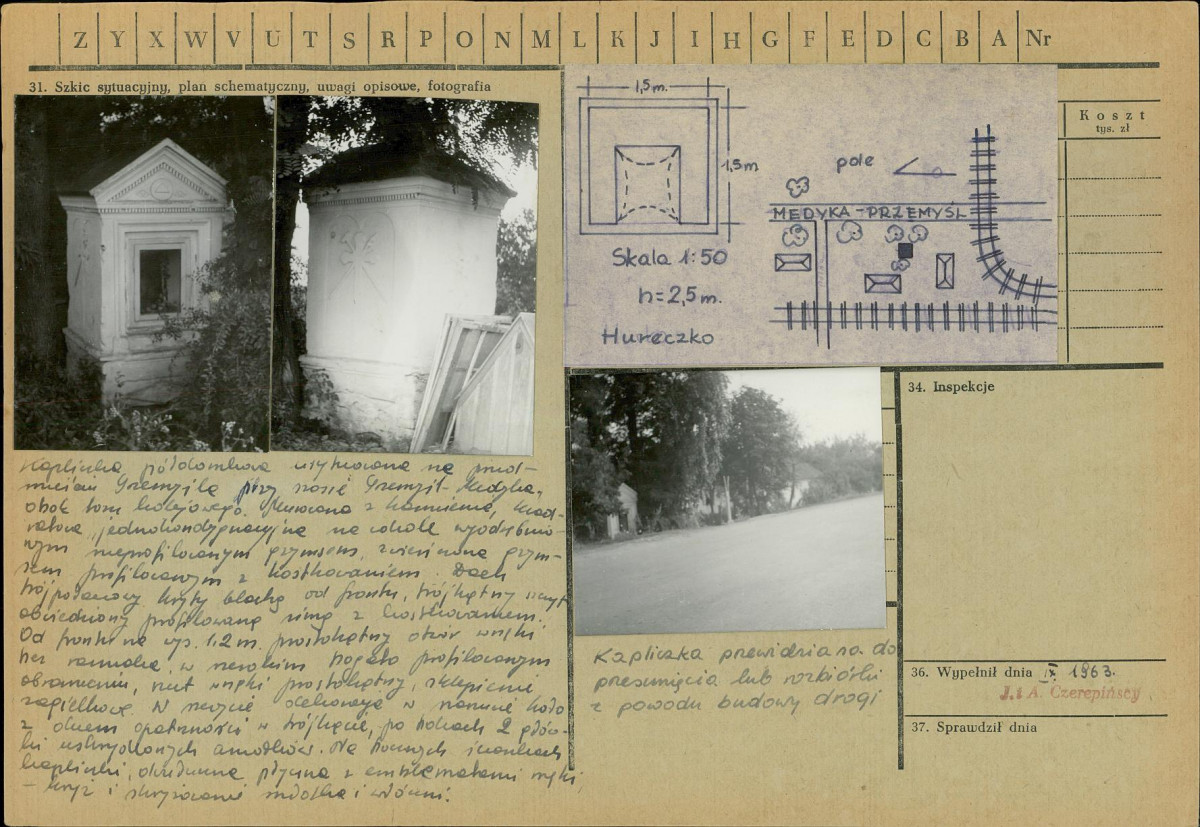 Z Y X W V U T S R P O N M L K J I H G F E D C B A Nr
31. Szkic sytuacyjny, plan schematyczny, uwagi opisowe, fotografia
1,5 m.
1,5 m
Skala 1:50
h=2,5 m.
Hureczko
pole
MEDYKA-PRZEMYŚL
Koszt
tys. zł
Kapliczka półdomkowa usytuowana na przed-
mieściu Przemyśla przy szosie Przemyśl-Medyka,
obok toru kolejowego. Murowana z kamienia, kwad-
ratowa, jednokondygnacyjna na cokole wyodrębnio-
nym nieprofilowanym gzymsem, zwieńczona gzym-
sem profilowanym z kostkowaniem. Dach
trójpołaciowy kryty blachą od frontu, trójkątny szczyt
obwiedziony profilowaną simą z kostkowaniem.
Od frontu na wys. 1,2 m. prostokątny otwór wnęki
bez zamknięcia, w szerokim bogato profilowanym
obramieniu, rzut wnęki prostokątny, sklepienie
żagielkowe. W szczycie dekoracja w narzucie koło
z okiem opatrzności w trójkącie, po bokach 2 głów-
ki uskrzydlonych aniołków. Na bocznych ściankach
kapliczki, płycina z emblematami męki,
– krzyż i skrzyżowanie młotka i włóczni.
Kapliczka przewidziana do
przesunięcia lub rozbiórki
z powodu budowy drogi
34. Inspekcje
36. Wypełnił dnia IX 1963.
J. i A. Czerepińscy
37. Sprawdził dnia